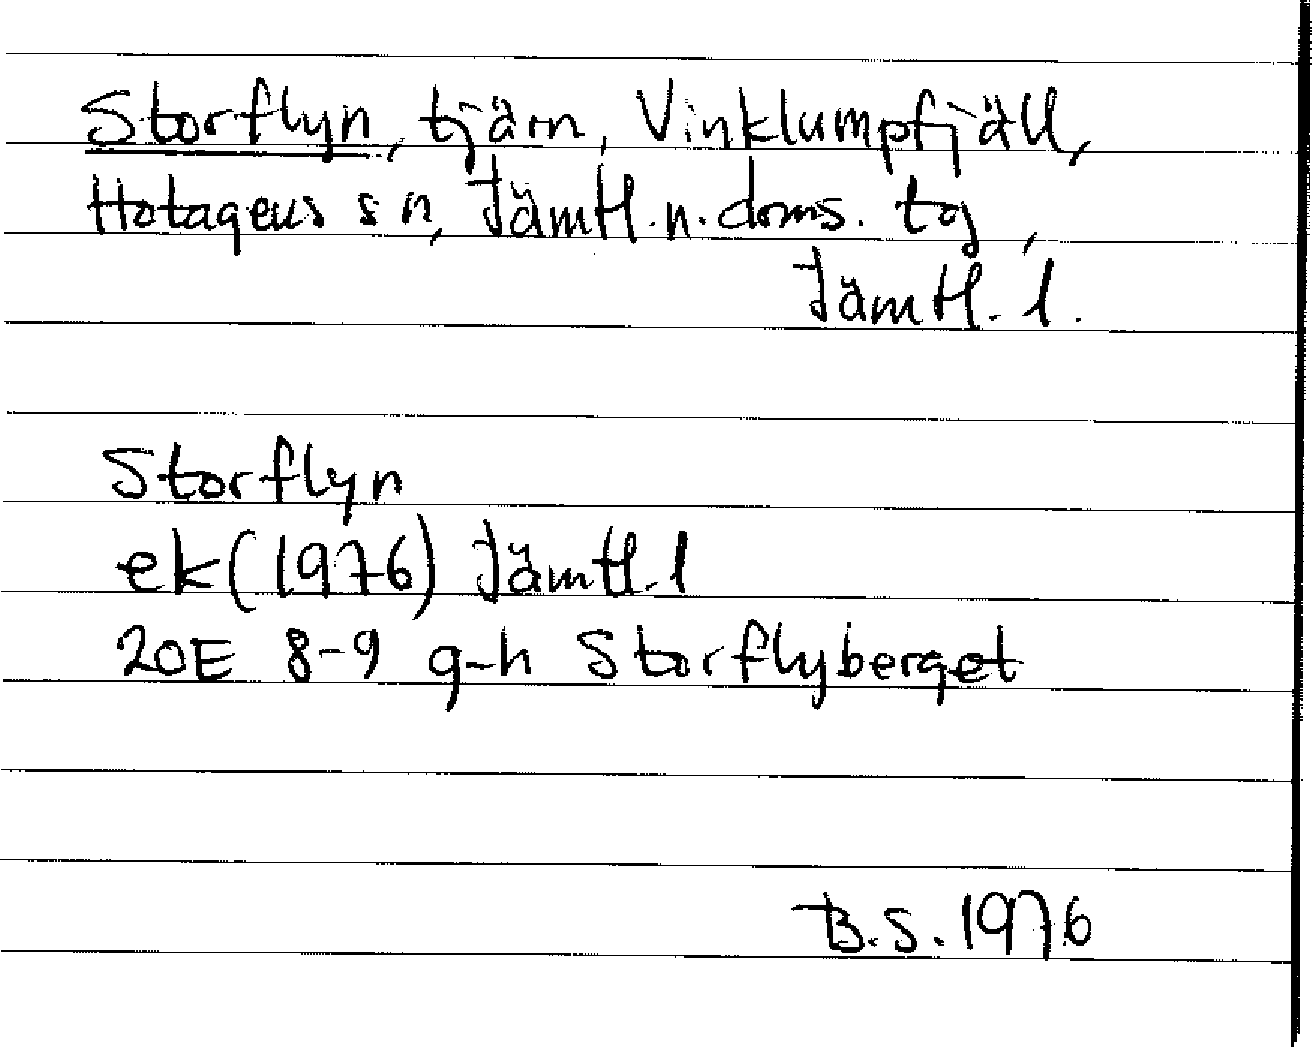 Storflyn, tjärn, Vinklumpfjäll,
Hotagens sn, Jämtl.n.doms. tg,
Jämtl. l.
Storflyn
ek(1976) Jämtl.l
20E 8-9 g-h Storflyberget
B.S. 1976